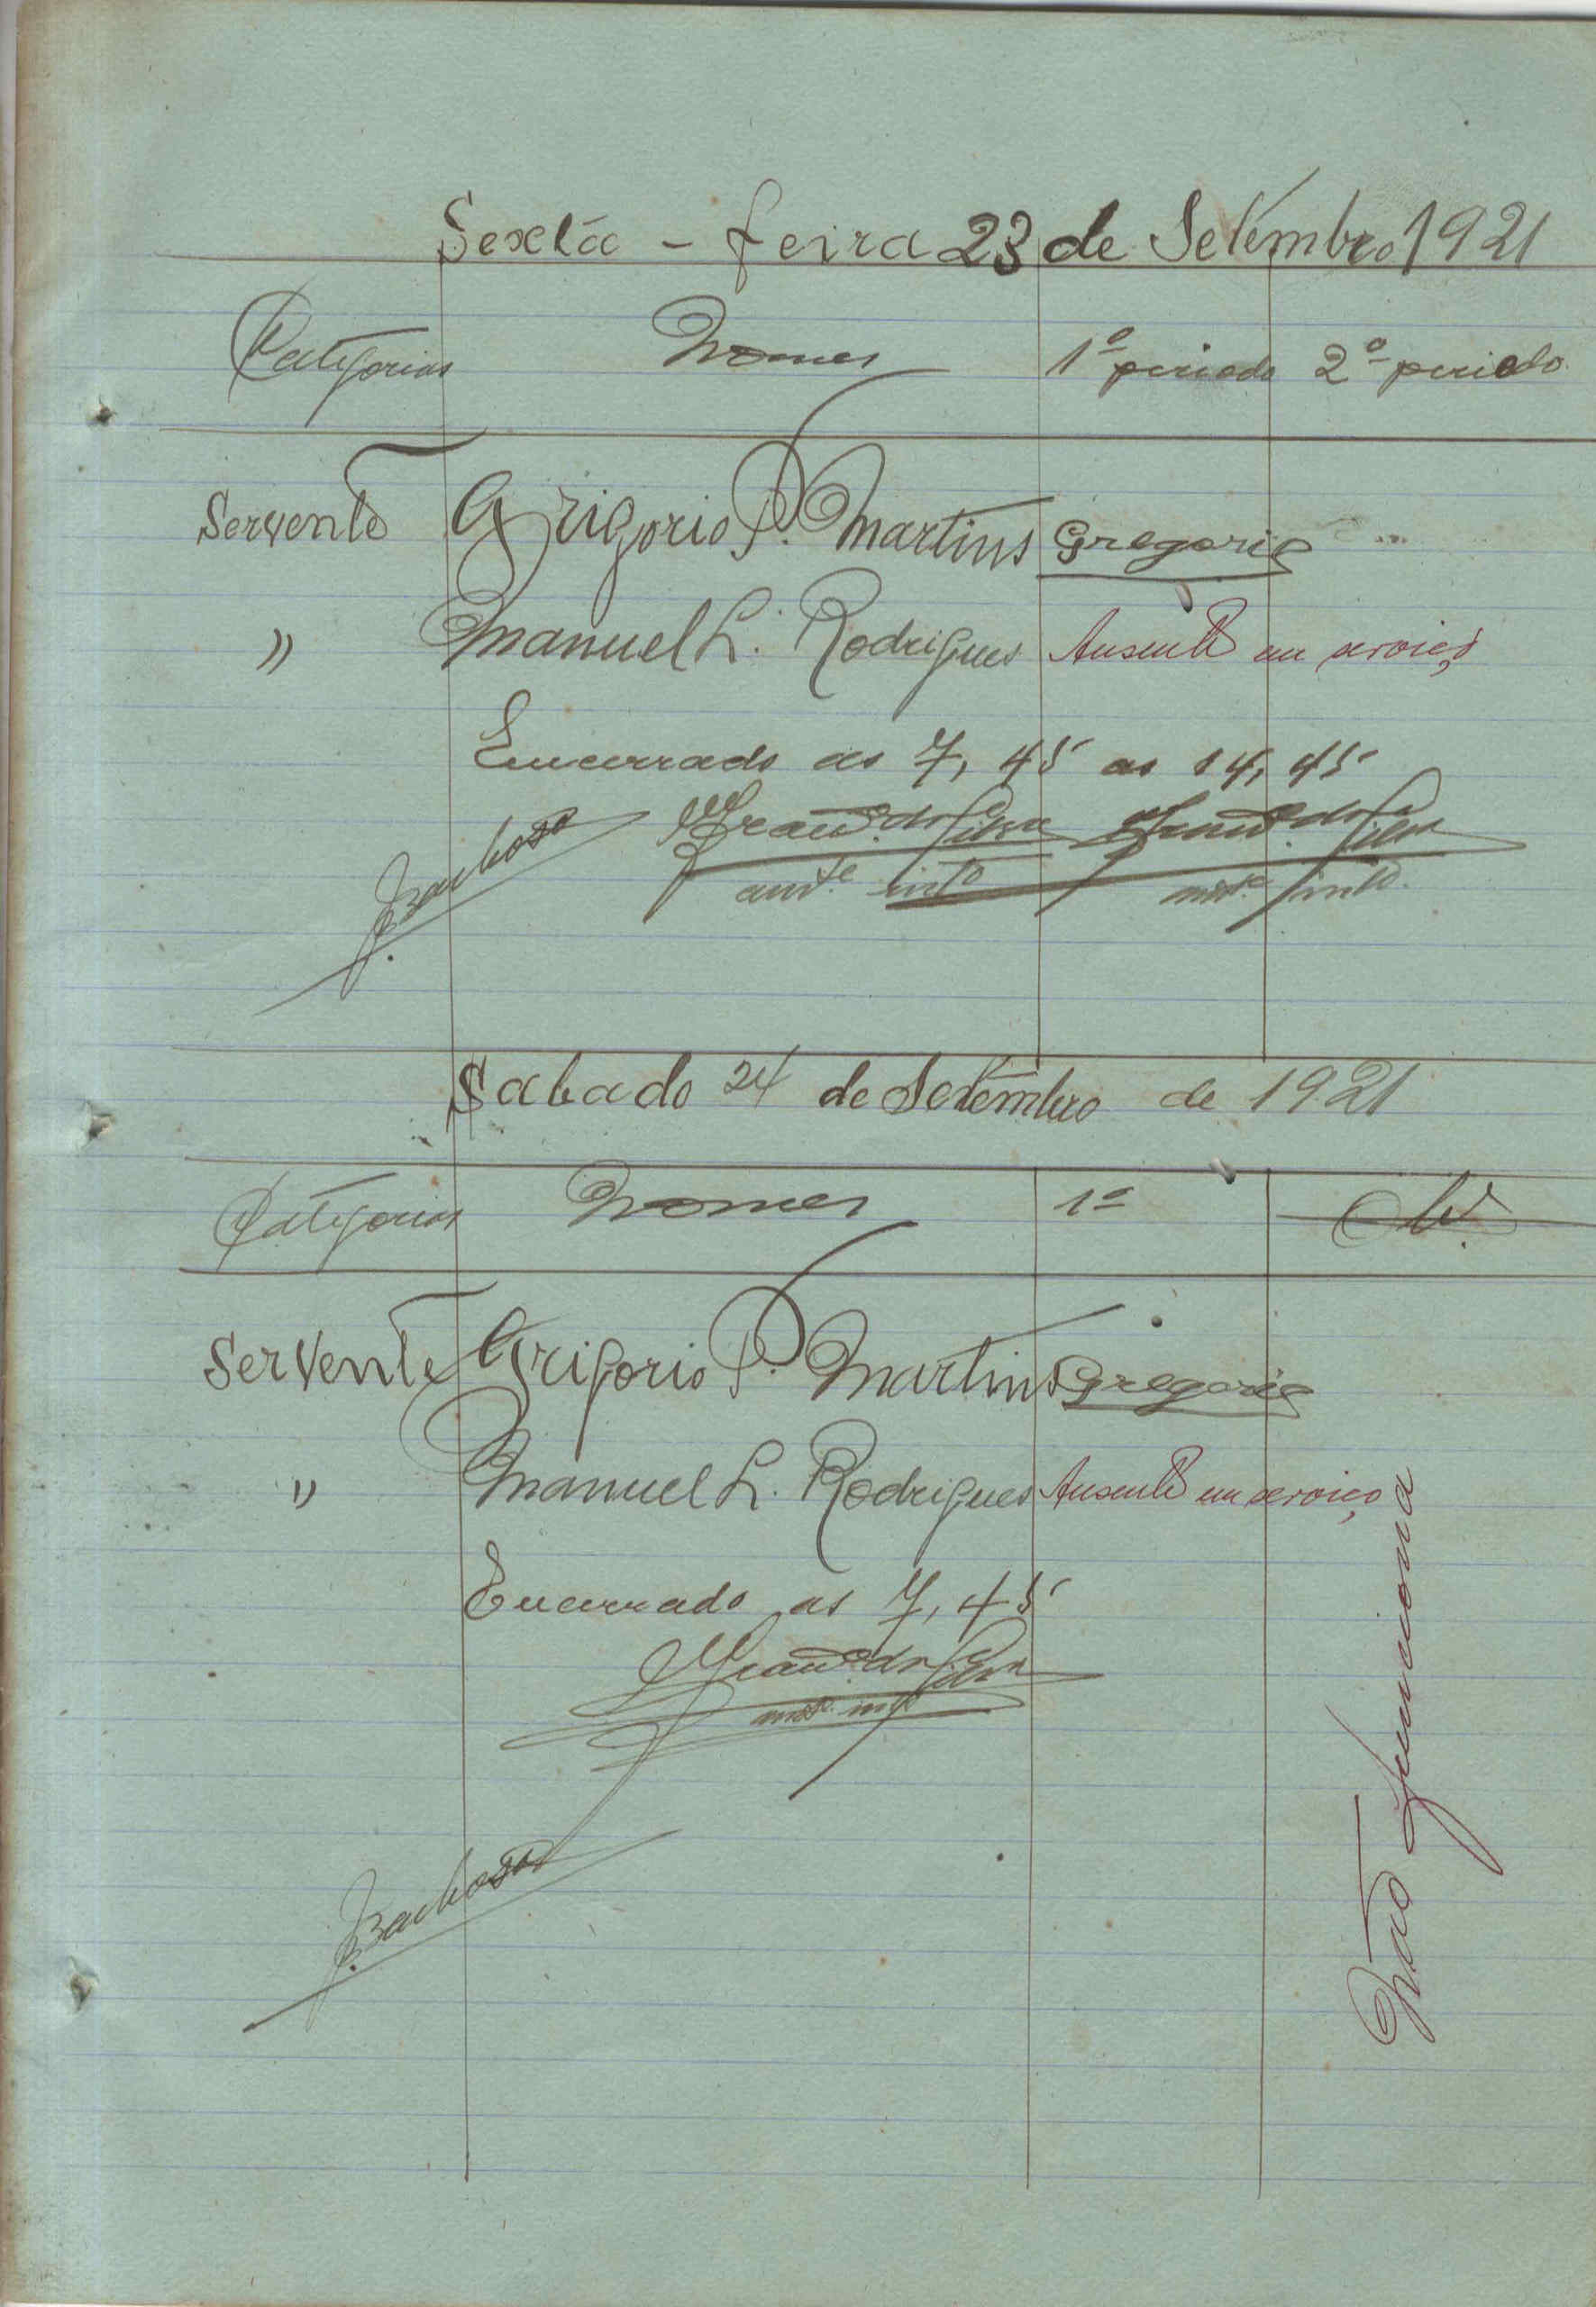 Sexta - feira 23 de Setembro 1921
Categorias Nomes 1º periodo 2º periodo
Servente Grigorio P. Martins Gregorio
" Manuel L. Rodrigues Ausente em serviço
Encerrado as 7,45 as 14,45
Barbosa da Silva da Silva
Sabado 24 de Setembro de 1921
Categorias Nomes 1º
Servente Grigorio P. Martins Gregorio
" Manuel L. Rodrigues Ausente em serviço
Encerrado as 7,45
da Silva
Barbosa
Não funciona